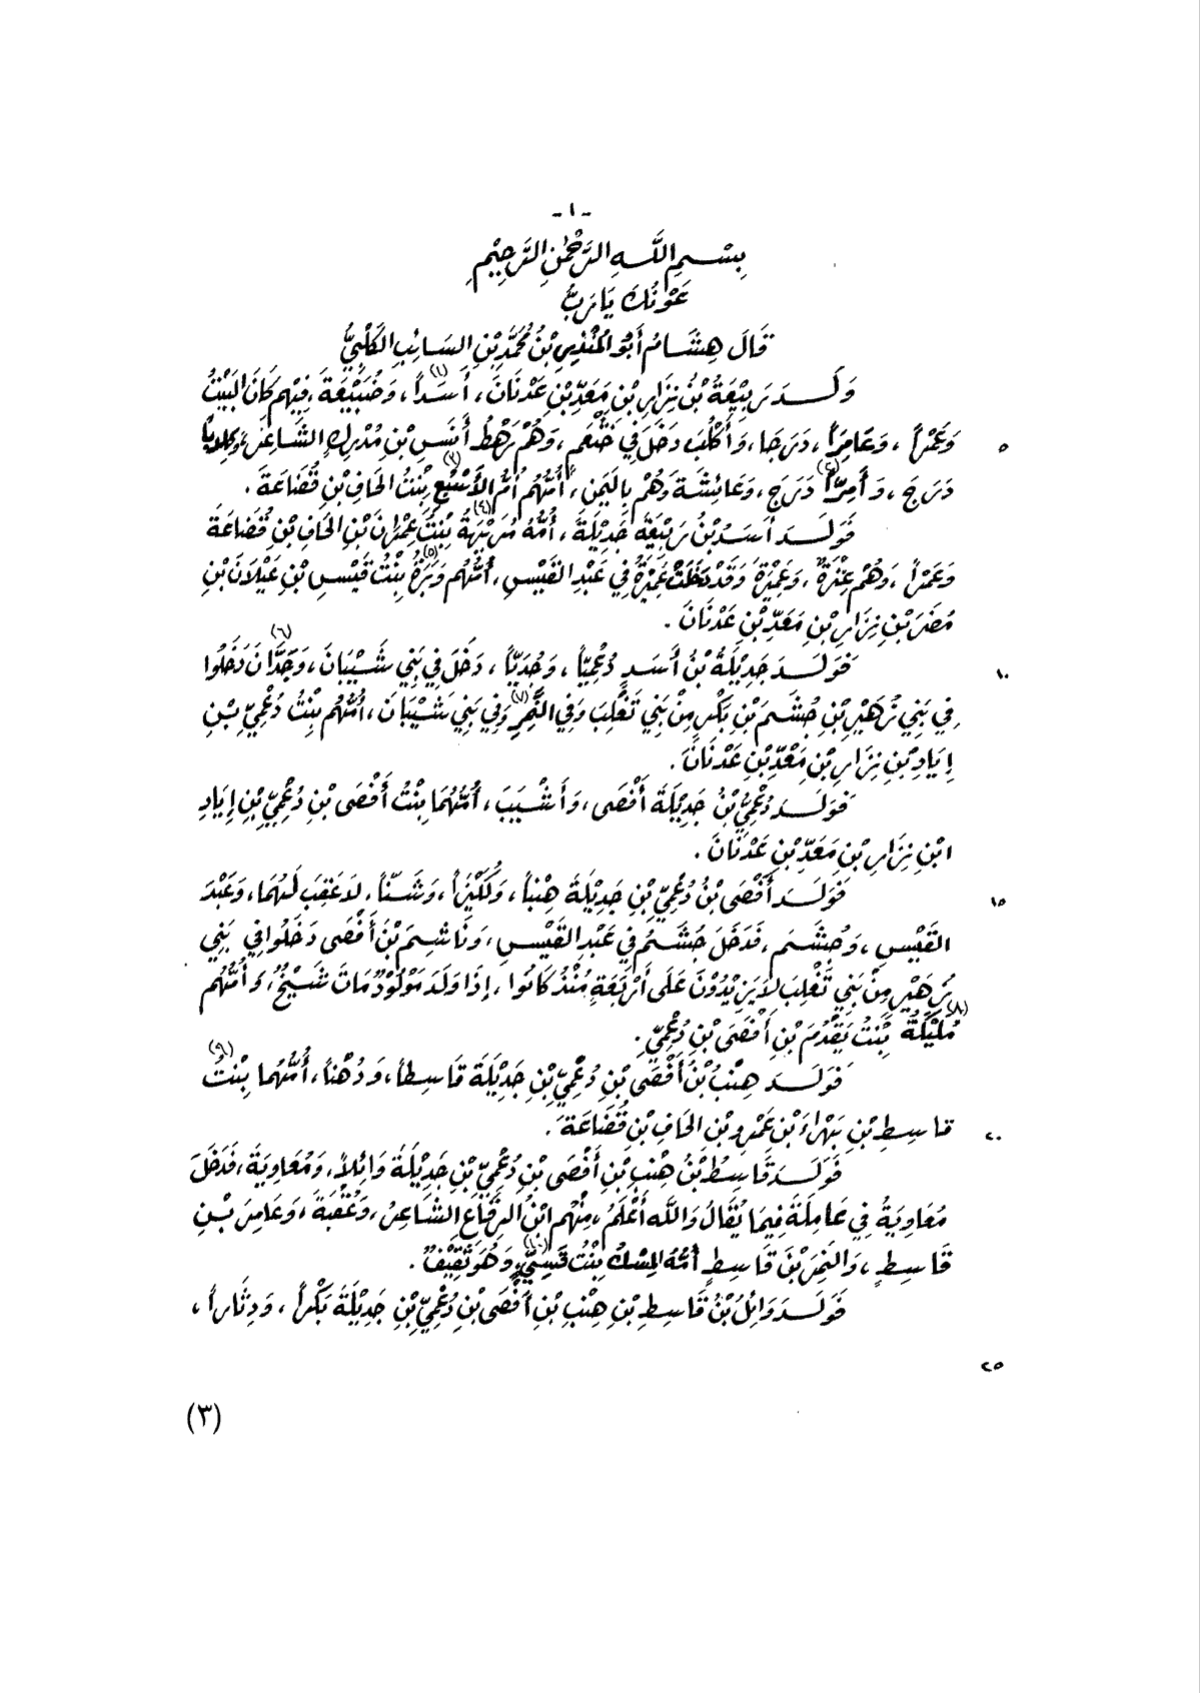 - ١ -
بِسْمِ اللَّهِ الرَّحْمٰنِ الرَّحِيْمِ
عَوْنُكَ يَا رَبُّ
قَالَ هِشَامُ أَبُو الْمُنْذِرِ بْنُ مُحَمَّدِ بْنِ السَّائِبِ الكَلْبِيُّ
وَلَدَ رَبِيْعَةُ بْنُ نِزَارِ بْنِ مَعَدِّ بْنِ عَدْنَانَ، أَسَداً(١)، وَضُبَيْعَةَ، فِيْهِم كَانَ البَيْتُ
٥ وَعَمْراً، وَعَامِراً، دَرَجَا، وَأَكْلُبَ دَخَلَ فِي خَثْعَمِ، وَهُمْ رَهْطُ أَنَسِ بْنِ مُدْرِكٍ الشَّاعِرَ، وَكِلَاباً
دَرَجَ، وَأَمِرّاً(٢) دَرَجَ، وَعَائِشَةَ وَهُمْ بِاليَمَنِ، أُمُّهُم أُمُّ الأَسْبُعِ(٣) بِنْتُ الحَافِ بْنِ قُضَاعَةَ.
فَوَلَدَ أَسَدُ بْنُ رَبِيْعَةَ جَدِيْلَةَ، أُمُّهُ مُزَيْهَةُ(٤) بِنْتُ عِمْرَانَ بْنِ الحَافِ بْنِ قُضَاعَةَ
وَعَمْراً، وَهُمْ عَنْزَةُ، وَعَمِيْرَةَ وَقَدْ دَخَلَتْ عَمِيْرَةُ فِي عَبْدِ القَيْسِ، أُمُّهُم وَبَرَةُ(٥) بِنْتُ قَيْسِ بْنِ عَيْلَانَ بْنِ
مُضَرَ بْنِ نِزَارِ بْنِ مَعَدِّ بْنِ عَدْنَانَ.
١٠ فَوَلَدَ جَدِيْلَةُ بْنُ أَسَدٍ دُعْمِيّاً، وَجُدَيّاً، دَخَلَ فِي بَنِي شَيْبَانَ، وَجَدَّانَ(٦) دَخَلُوا
فِي بَنِي زُهَيْرِ بْنِ جُشَمَ بْنِ بَكْرٍ مِنْ بَنِي تَغْلِبَ وَفِي النَّمِرِ(٧) وَفِي بَنِي شَيْبَانَ، أُمُّهُم بِنْتُ دُعْمِيِّ بْنِ
إِيَادِ بْنِ نِزَارِ بْنِ مَعَدِّ بْنِ عَدْنَانَ.
فَوَلَدَ دُعْمِيُّ بْنُ جَدِيْلَةَ أَفْصَى، وَأَشْيَبَ، أُمُّهُمَا بِنْتُ أَفْصَى بْنِ دُعْمِيِّ بْنِ إِيَادِ
ابْنِ نِزَارِ بْنِ مَعَدِّ بْنِ عَدْنَانَ.
١٥ فَوَلَدَ أَفْصَى بْنُ دُعْمِيِّ بْنِ جَدِيْلَةَ هِنْباً، وَلُكَيْزاً، وَشَنّاً، لَا عَقِبَ لَهُمَا، وَعَبْدَ
القَيْسِ، وَجُشَمَ، فَدَخَلَ جُشَمُ فِي عَبْدِ القَيْسِ، وَنَاشِمَ بْنَ أَفْصَى دَخَلُوا فِي بَنِي
زُهَيْرٍ مِنْ بَنِي تَغْلِبَ لَا يَزِيْدُوْنَ عَلَى أَرْبَعَةٍ مُنْذُ كَانُوا، إِذَا وَلَدَ مَوْلُوْدٌ مَاتَ شَيْخٌ، وَأُمُّهُم
مُلَيْكَةُ(٨) بِنْتُ يَقْدُمَ بْنِ أَفْصَى بْنِ دُعْمِيِّ.
فَوَلَدَ هِنْبُ بْنُ أَفْصَى بْنِ دُعْمِيِّ بْنِ جَدِيْلَةَ قَاسِطاً، وَدُهْناً، أُمُّهُمَا بِنْتُ(٩)
٢٠ قَاسِطِ بْنِ بَهْرَاءَ بْنِ عَمْرِو بْنِ الحَافِ بْنِ قُضَاعَةَ.
فَوَلَدَ قَاسِطُ بْنُ هِنْبِ بْنِ أَفْصَى بْنِ دُعْمِيِّ بْنِ جَدِيْلَةَ وَائِلاً، وَمُعَاوِيَةَ، فَدَخَلَ
مُعَاوِيَةُ فِي عَامِلَةَ فِيمَا يُقَالُ وَاللَّه أَعْلَمُ، مِنْهُم ابْنُ الرِّقَاعِ الشَّاعِرُ، وَعُقْبَةَ، وَعَامِرَ بْنِ
قَاسِطٍ، وَالنَّمِرَ بْنَ قَاسِطٍ أُمُّهُ المِسْكُ بِنْتُ قَسِيٍّ(١٠)، وَهُوَ ثَقِيْفٌ.
فَوَلَدَ وَائِلُ بْنُ قَاسِطِ بْنِ هِنْبِ بْنِ أَفْصَى بْنِ دُعْمِيِّ بْنِ جَدِيْلَةَ بَكْراً، وَدِثَاراً،
٢٥
(٣)